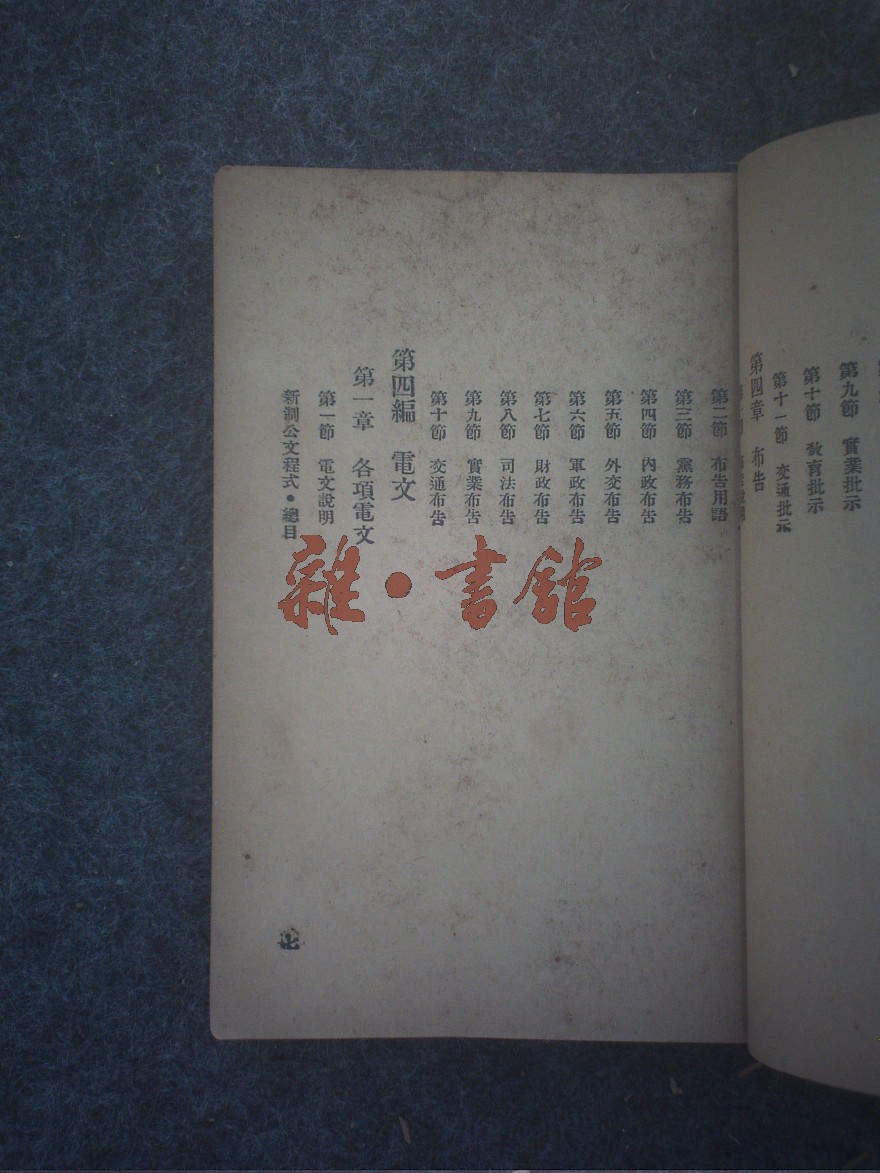 第九節　實業批示
第十節　敎育批示
第十一節　交通批示
第四章　布告
第二節　布告用語
第三節　黨務布告
第四節　內政布告
第五節　外交布告
第六節　軍政布告
第七節　財政布告
第八節　司法布告
第九節　實業布告
第十節　交通布告
第四編　電文
第一章　各項電文
第一節　電文說明
新制公文程式●總目
七
雜●書館